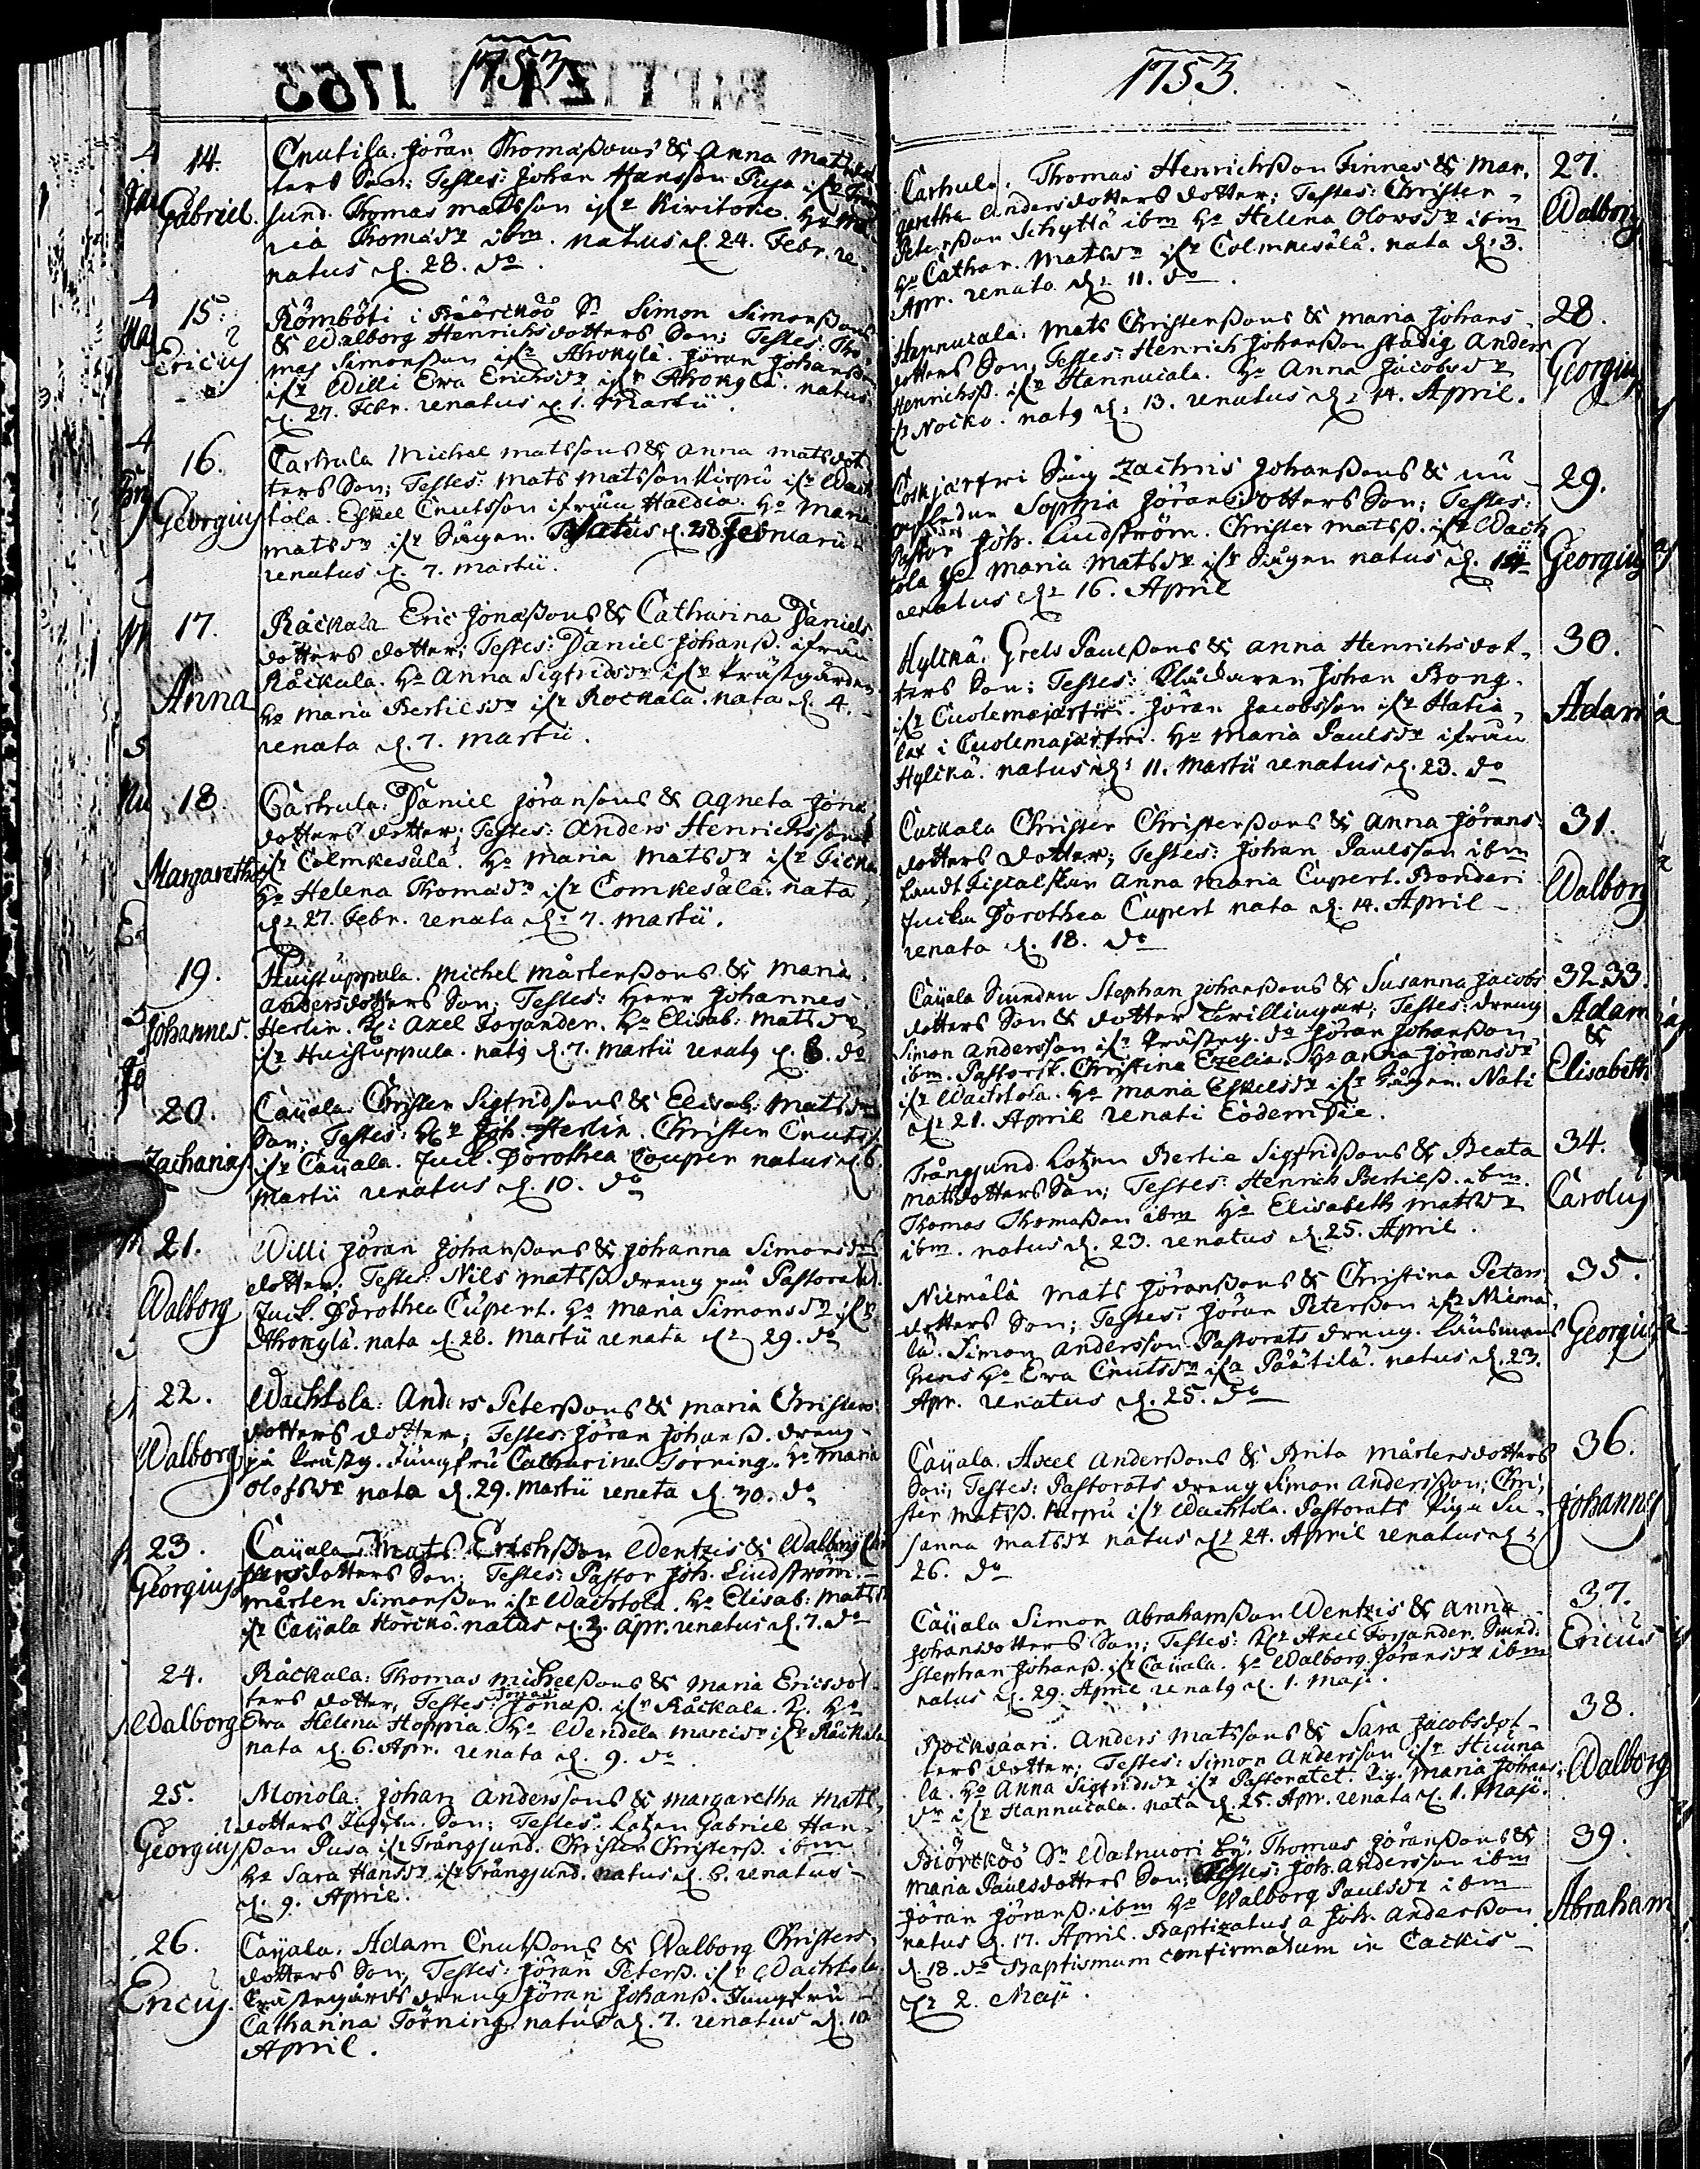 1753
14.
Gabriel.
Cnutila. Jöran Thomæßons & Anna Mats
ters Son; Testes: Johan Hansson Pusa ifr
sund. Thomas Matsson ifr Kivitorie. Ha
ria Thomædr ibm. natus d. 24. Febr. re-
natus d. 28. do.
15.
Ericus
Römböti i Biörcköö Sn Simon Simonßons
& Walborg Henrichsdotters Son; Testes: Tho
mas Simonßon ifr Ahrongla. Jöran Johanßon
ifr Willi Ewa Erichsdr ifr Ahrongla. natus
d. 27. Febr. renatus d. 1. Martii.
16.
Georgius
Carhula Michel Matssons & Anna Matsdot
ters Son; Testes: Mats Matsson Kirpu ifr Wach
tola. Eskel Cnutsson ifrån Haldia. Ha Maria
Matsdr ifr Sågen. Natus d. 28 Februarii
renatus d. 7. Martii.
17.
Anna
Råckala Eric Jonæßons & Catharina Daniels
dotters dotter; Testes: Daniel Johanß. ifrån
Råckala. Ha Anna Sigfridsdr ifr Prästgården
Ha Maria Bertilsdr ifr Rockala. nata d. 4.
renata d. 7. Martii.
18.
Margaretha
Carhula. Daniel Jöransons & Agneta Jönæ
dotters dotter; Testes: Anders Henrichssons
ifr Colmkesälä. Ha Maria Matsdr ifr
Ha Helena Thomædr ifr Comkesälä. nata
d. 27. Febr. renata d. 7. Martii.
19.
Johannes.
Huistuppula. Michel Mårtenßons & Maria
Andersdotters Son; Testes: Herr Johannes
Herlin. Hr: Axel Foyander. Ha Elisab: Matsdr
ifr Huistuppula. natg d. 7. Martii renatg d. 8. do
20.
Zacharias
Caijala Christer Sigfridsons & Elisab: Matsdrs
Son; Testes: Hr Joh. Herlin. Christer Cnuts
ifr Caijala. Juct. Dorothea Couper natus d. 6
Martii renatus d. 10. do
21.
Walborg
Willi Jöran Johanßons & Johanna Simonsdrs
dotter; Testes: Nils Matsß. dreng på Pastoratet.
Juck. Dorothea Cupert. Ha Maria Simonsdr ifr
Ahrongla. nata d. 28. Martii renata d. 29. do
22.
Walborg
Wachtola. Anders Petersßons & Maria Christers
dotters dotter; Testes: Jöran Johanß. dreng
på Prästg. Jungfru Catharina Törning. Ha Maria
Olofsdr nata d. 29. Martii renata d. 30. do
23.
Georgius
Caijala Mats Erichßon Wentzis & Walborg
persdotters Son; Testes: Pastor Joh. Lindström.
Mårten Simonßon ifr Wachtola. Ha Elisab: Mattsdr
ifr Caijala Körckö. natus d. 2. Apr. renatus d. 7. do
24.
Walborg
Råckala: Thomas Michelßons & Maria Ericsdot
ters dotter, Testes: Jonæß. ifr Råckala. Ha
Ewa Helena Hoppia. Ha Wendela Marcidr ifr Råckala
nata d. 6. Apr. renata d. 9. do
25.
Georgius
Moriola. Johan Anderssons & Margaretha Mats
dotters Son; Testes: Lotzen Gabriel Han-
ßon Pusa ifr Trångsund. Christer Christerß. ibm
Ha Sara Hansdr ifr Trångsund. natus d. 6. renatus
d. 9. April.
26.
Ericus.
Caijala. Adam Cnutßons & Walborg Christers
dotters Son; Testes: Jöran Petersß. ifr Wachtola.
Prästegårds dreng Jöran Johanß. Jungfru
Catharina Törning. natus d. 7. renatus d. 10.
April.
1753.
27.
Walborg
Carhula. Thomas Henrichßon Finnes & Mar.
garetha Andersdotters dotter; Testes: Christer
Petersßon Schyttä ibm Ha Helena Olowsdr ibm
Ha Cathar. Matsdr ifr Colmkesälä. nata d. 3.
Apr. renata d. 11. do.
28.
Georgius
Hannucala. Mats Christerßons & Maria Johans
dotters Son; Testes: Henrich Johanßon Stadig Anders
Henrichsß. ifr Hannucala. Ha Anna Jacobsdr
ifr Nocko. natg d. 13. renatus d. 14. April.
29.
Georgius
Coskijärfwi Säng Zachris Johanßons & nu
Sophia Jöransdotters Son; Testes:
Pastor Joh. Lindström. Christer Matsß. ifr Wach
tola Ha Maria Matsdr ifr Sågen natus d. 14
renatus d. 16. April
30.
Adam
Hylckä. Grels Paulßons & Anna Henrichsdot-
ters Son; Testes: Johan Bong.
ifr Cuolemajärfwi. Jöran Jacobsson ifr Hatia-
lax i Cuolemajärfwi. Ha Maria Paulsdr ifrån
Hylckä. natus d. 11. Martii renatus d. 23. do
31.
Walborg
Cuckala Christer Christerßons & Anna Jörans
dotters dotter; Testes: Johan Paulsson ibm
Landt Fiscalskan Anna Maria Cupert. Bondari
Dorothea Cupert nata d. 14. April
renata d. 18. do
32. 33.
Adam
&
Elisabeth
Caijala Smeden Stephan Johanßons & Susanna Jacobs
dotters Son & dotter Twillingar; Testes: dreng
Simon Andersson ifr Prästeg. do Jöran Johanßon
ibm. Pastorsk. Christina Ezelia. Ha Anna Jöransdr
ifr Wachtola. Ha Maria Eskelsdr ifr Sågen. Nati
d. 21. April renati Eodem Die.
34.
Carolus
Trångsund. Lotzen Bertil Sigfridßons & Beata
Mattsdotters Son; Testes: Henrich Bertilß. ibm.
Thomas Thomaßon ibm Ha Elisabeth Mattsdr
ibm. natus d. 23. renatus d. 25. April.
35.
Georgius
Niemälä Mats Jöranßons & Christina Peters
dotters Son; Testes: Jöran Petersßon ifr Niemä-
lä. Simon Andersson Pastorats dreng. Länsmans
Grens Ha Ewa Cnutsdr ifr Päätilä. natus d. 23.
Apr. renatus d. 25. do
36.
Johannes
Caijala. Axel Anderßons & Brita Mårtensdotters
Son; Testes: Pastorats dreng Simon Andersson; Chri-
ster Matsß. Kirpu ifr Wachtola. Pastorats Piga Su-
sanna Matsdr natus d. 24. April renatus d.
26. do
37.
Ericus
Caijala Simon Abrahamßon Wentzis & Anna
Johansdotters Son; Testes: Hr Axel Foyander. Smed.
Stephan Johanß. ifr Caijala. Ha Walborg Jöransdr ibm
natus d. 29. April renatg d. 1. Maji.
38.
Walborg
Rocksaari. Anders Matssons & Sara Jacobsdot-
ters dotter; Testes: Simon Andersson ifr Huuna
la. Ha Anna Sigfridsdr ifr Pastoratet. Pig. Maria Johans
dr ifr Hannucala. nata d. 25. Apr. renata d. 1. Maji.
39.
Abraham
Biörcköö Sn Walnuori by. Thomas Jöranßons &
Maria Paulsdotters Son; Testes: Joh. Andersson ibm
Jöran Jöranß. ibm Ha Walborg Paulsdr ibm
natus d. 17. April. Baptizatus a Joh. Anderßon
d. 18. do Baptismum confirmatum in Cackis
d. 2. Maji.